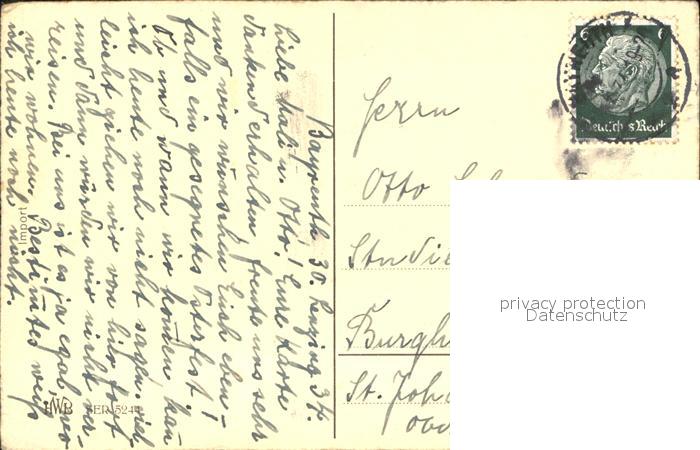 Bayreuth 30. Lenzing 34.
Liebe Mali u. Otto! Eure Karte
dankend erhalten, freute uns sehr
und wir wünschen Euch eben-
falls ein gesegnetes Osterfest!
Ob und wann wir kommen kan
ich heute noch nicht sagen. Viel
leicht ziehen wir von hier fort
und dann würden wir nicht ver-
reisen. Bei uns ist es ja egal, wo
wir wohnen. Bestimtes weiß
ich heute noch nicht.
Import
HWB SER 5244
6 6
Deutsches Reich
Herrn
Otto
Studie
Burgh
St. Joh
privacy protection
Datenschutz